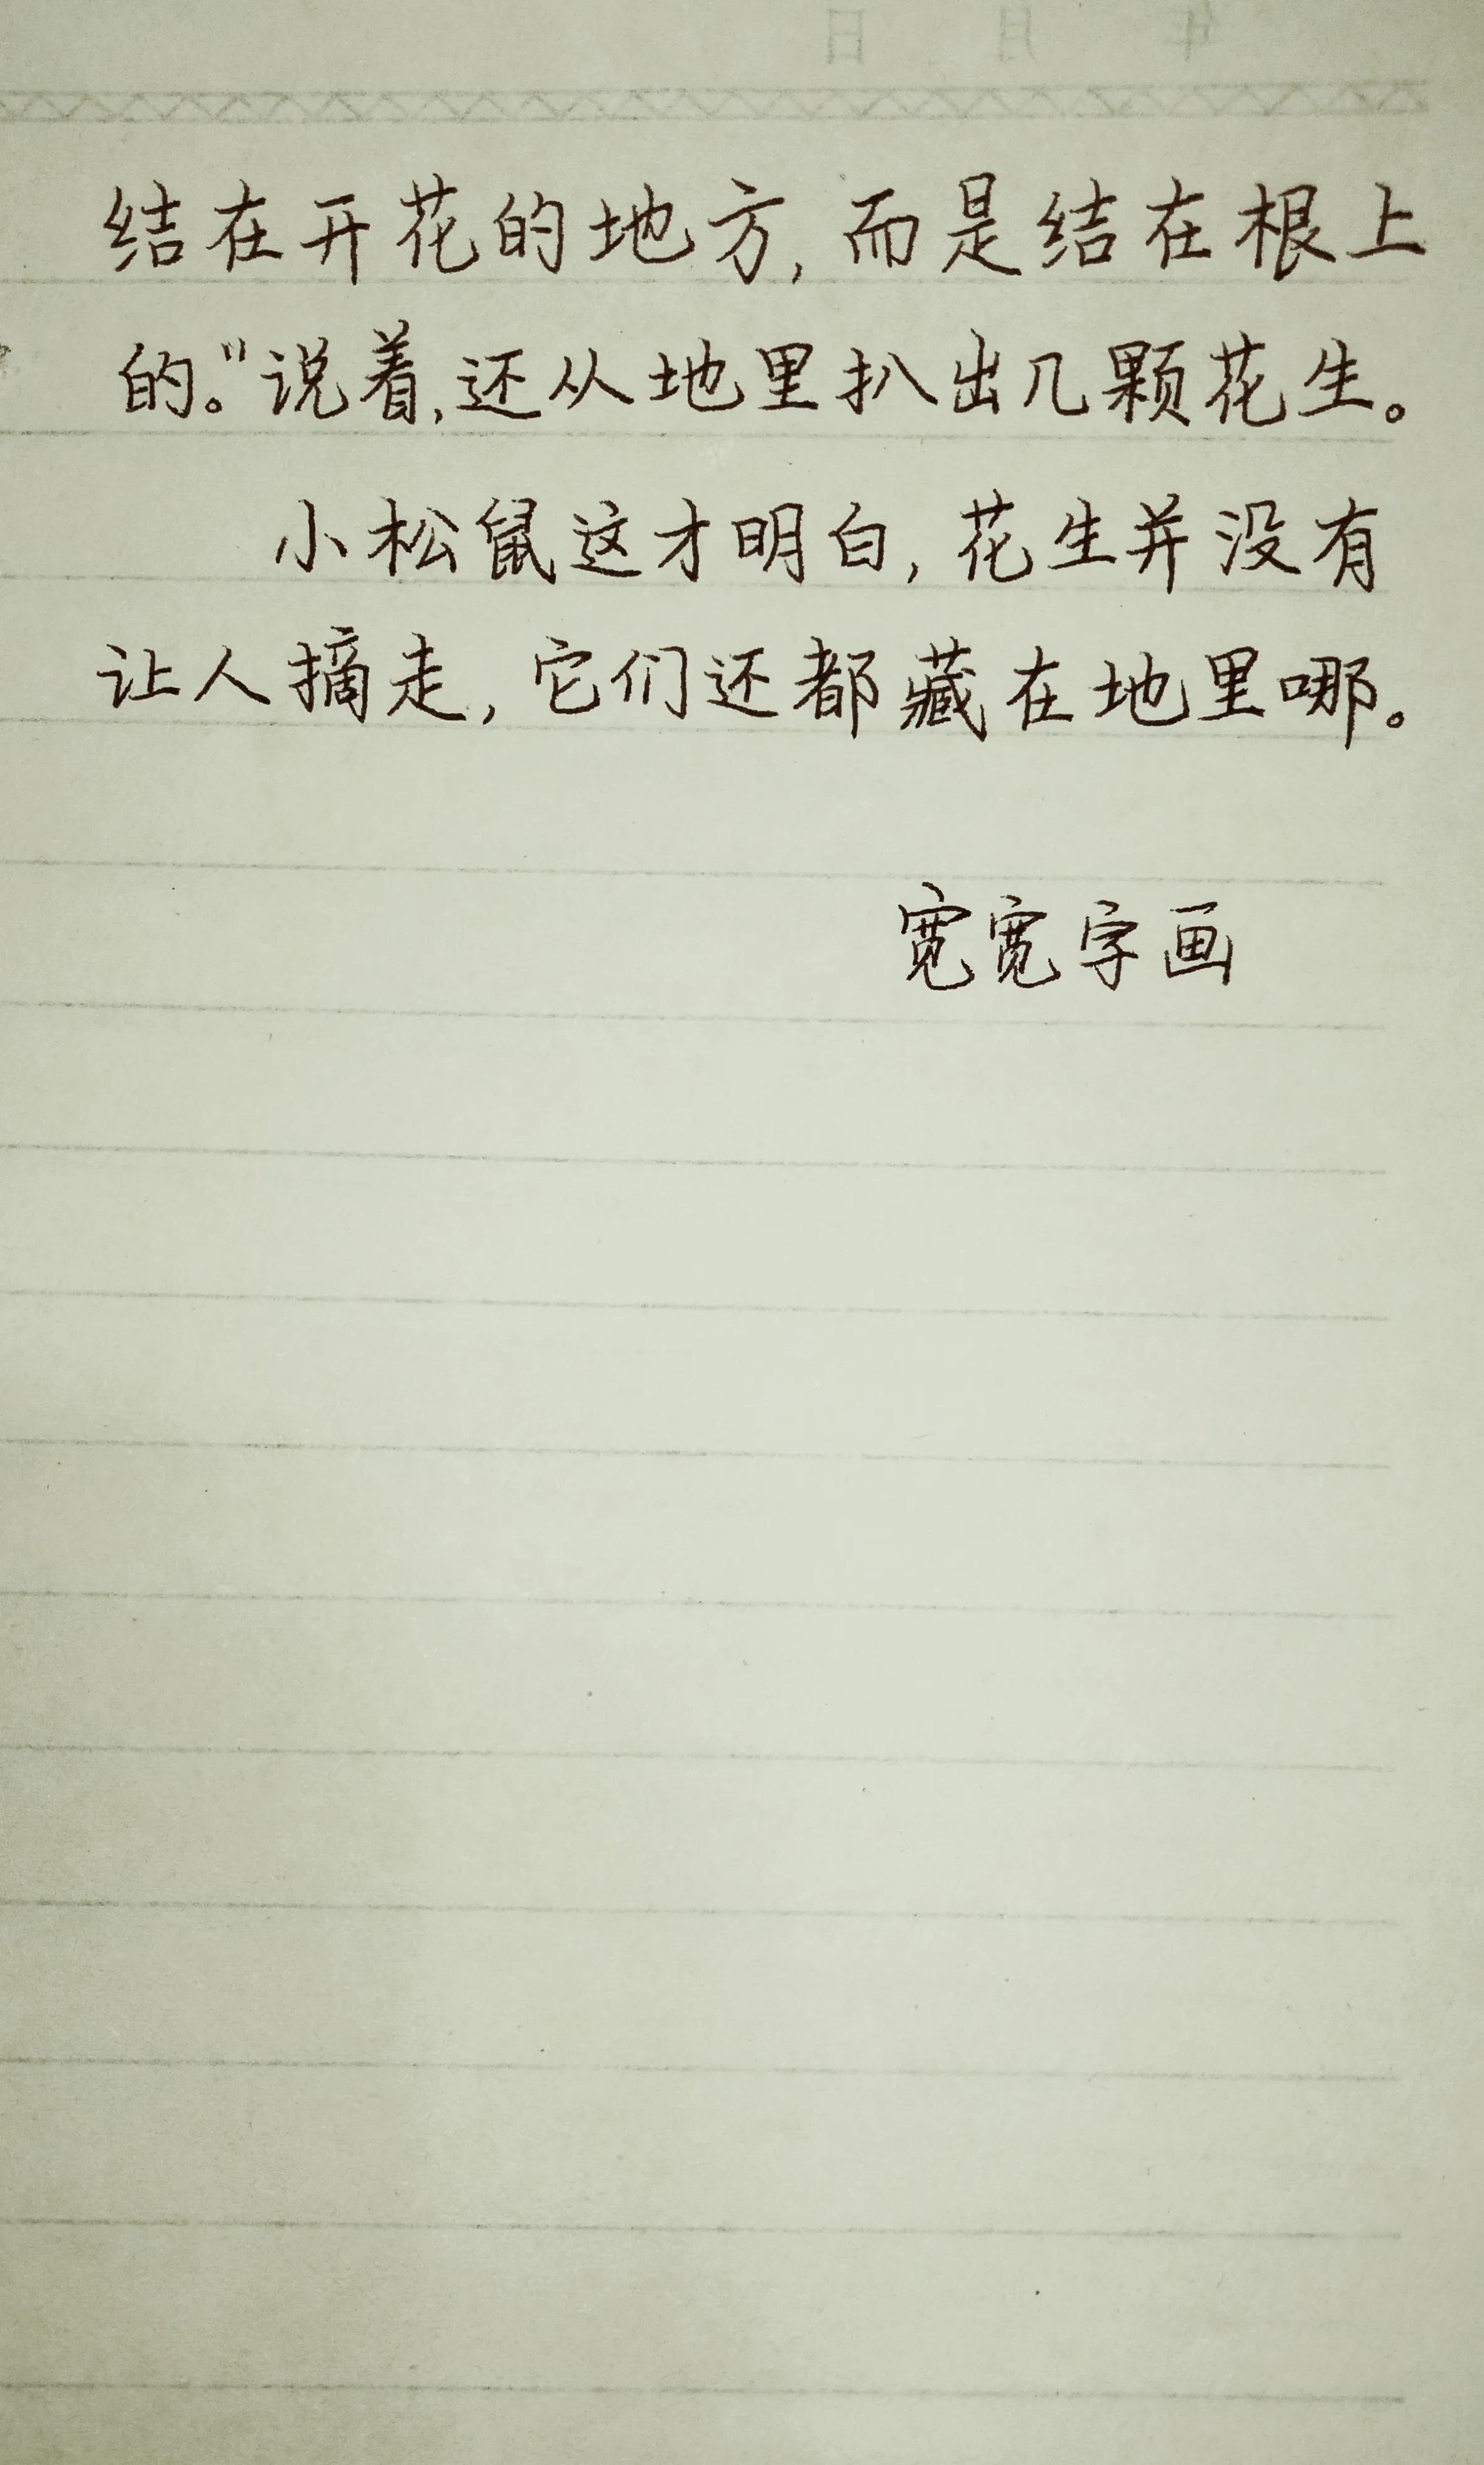 结在开花的地方，而是结在根上
的。”说着，还从地里扒出几颗花生。
小松鼠这才明白，花生并没有
让人摘走，它们还都藏在地里哪。
宽宽字画